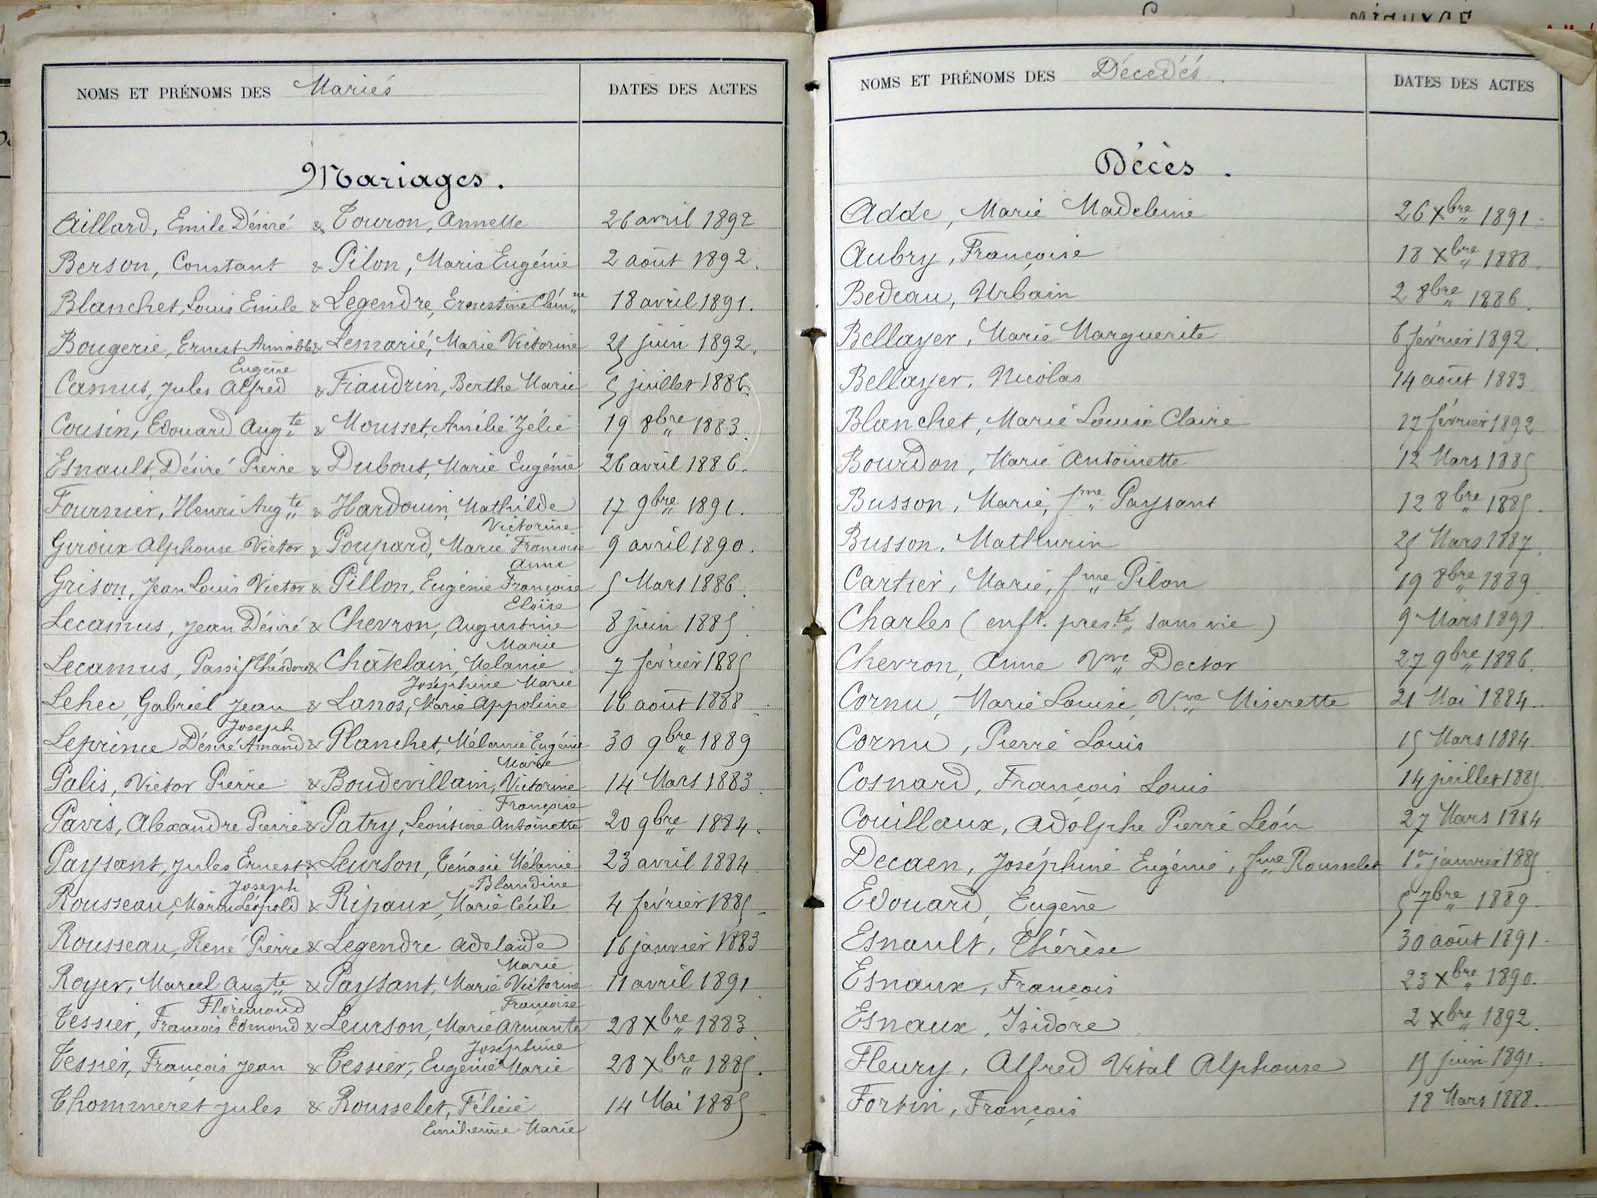 NOMS ET PRÉNOMS DES Mariés DATES DES ACTES
Mariages.
Aillard, Emile Désiré & Touron, Annette 26 avril 1892
Berson, Constant & Pilon, Maria Eugénie 2 août 1892.
Blanchet, Louis Emile & Legendre, Ernestine Clém.ne 18 avril 1891.
Bougerie, Ernest Aimable & Lemarié, Marie Victorine 25 juin 1892.
Eugène
Camus, Jules Alfred & Fiaudrin, Berthe Marie 5 juillet 1886.
Cousin, Edouard Aug.te & Mousset, Amélie Zélie 19 8bre 1883.
Esnault, Désiré Pierre & Dubout, Marie Eugénie 26 avril 1886.
Fournier, Henri Aug.te & Hardouin, Mathilde 17 9bre 1891.
Victorine
Giroux Alphonse Victor & Poupard, Marie Françoise 9 avril 1890.
Anne
Grison, Jean Louis Victor & Pillon, Eugénie Françoise 5 Mars 1886.
Eloïse
Lecamus, Jean Désiré & Chevron, Augustine 8 juin 1885.
Marie
Lecamus, Passif Théodore & Châtelain, Mélanie 7 février 1885
Joséphine Marie
Lehec, Gabriel Jean & Lanos, Marie Appoline 16 août 1888
Joseph
Leprince Désiré Amand & Planchet, Mélanie Eugénie 30 9bre 1889
Marie
Palis, Victor Pierre & Boudevillain, Victorine 14 Mars 1883.
Françoise
Pavis, Alexandre Pierre & Patry, Léontine Antoinette 20 9bre 1884.
Paysant, Jules Ernest & Leurson, Ténasie Mélanie 23 avril 1884.
Joseph Blandine
Rousseau, Marin Léopold & Ripaux, Marie Cécile 4 février 1885
Rousseau, René Pierre & Legendre Adelaïde 16 janvier 1883
Marie
Royer, Marcel Aug.te & Paysant, Marie Victorine 11 avril 1891
Florimond Françoise
Tessier, François Edmond & Leurson, Marie Armante 28 Xbre 1883
Joséphine
Tessier, François Jean & Tessier, Eugénie Marie 28 Xbre 1885.
Thommeret Jules & Rousselet, Félicie 14 Mai 1885
Emilienne Marie
NOMS ET PRÉNOMS DES Décedés. DATES DES ACTES
Décès.
Adde, Marie Madeleine 26 Xbre 1891.
Aubry, Françoise 18 Xbre 1888.
Bedeau, Urbain 2 8bre 1886.
Bellayer, Marie Marguerite 6 février 1892.
Bellayer, Nicolas 14 août 1883
Blanchet, Marie Louise Claire 17 février 1892
Bourdon, Marie Antoinette 12 Mars 1885
Busson, Marie, fme Paysant 12 8bre 1885.
Busson, Mathurin 25 Mars 1887.
Cartier, Marie, fme Pilon 19 8bre 1889.
Charles (enft. prés.té sans vie) 9 Mars 1891.
Chevron, Anne Vve Dector 27 9bre 1886.
Cornu, Marie Louise, Vve Miserette 21 Mai 1884.
Cornu, Pierre Louis 15 Mars 1884.
Cosnard, François Louis 14 juillet 1885.
Couillaux, Adolphe Pierre Léon 27 Mars 1884
Decaen, Joséphine Eugénie, fme Rousselet 1er janvier 1885
Edouard, Eugène 5 7bre 1889.
Esnault, Thérèse 30 août 1891.
Esnaux, François 23 Xbre 1890.
Esnaux, Isidore 2 Xbre 1892.
Fleury, Alfred Vital Alphonse 15 juin 1891.
Fortin, François 18 Mars 1888.